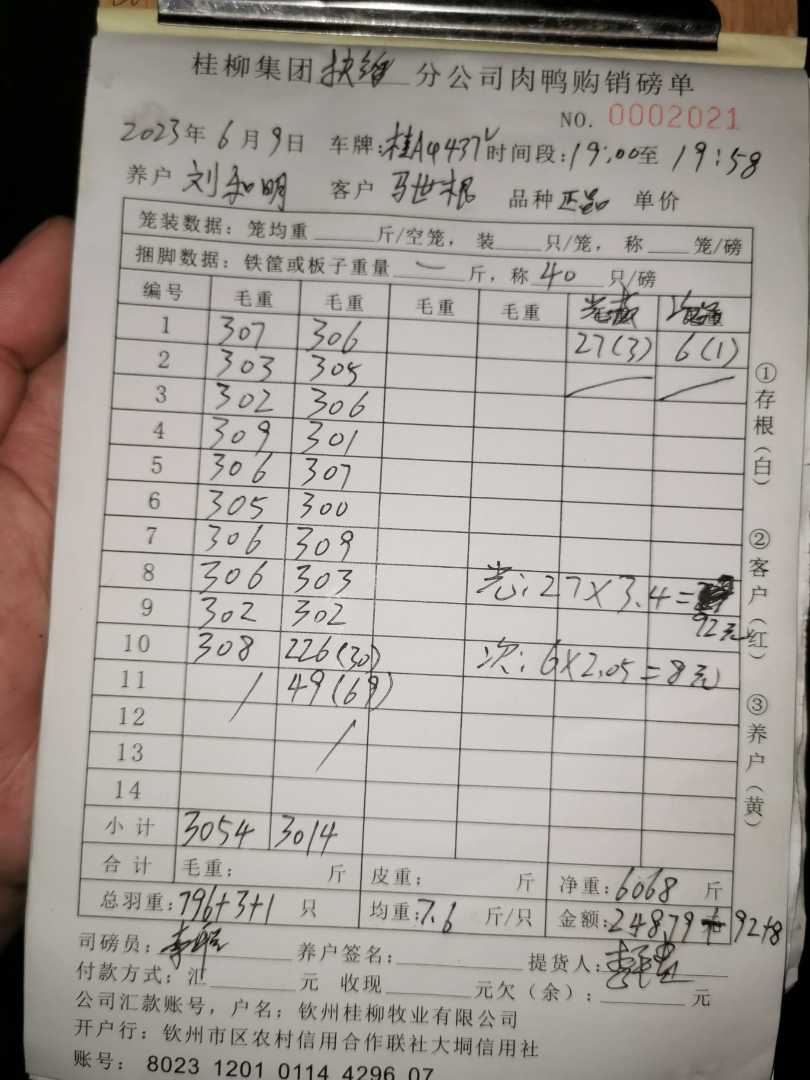 桂柳集团扶绥分公司肉鸭购销磅单
NO. 0002021
2023年6月9日 车牌:桂A4437V时间段:19:00至19:58
养户 刘和明 客户 马世根 品种 正品 单价
笼装数据:笼均重 斤/空笼,装 只/笼,称 笼/磅
捆脚数据:铁筐或板子重量 一 斤,称 40 只/磅
编号 毛重 毛重 毛重 毛重
1 307 306 27(3) 6(1)
2 303 305
3 302 306
4 309 301
5 306 307
6 305 300
7 306 309
8 306 303 光:27×3.4=
9 302 302 92元
10 308 226(30) 次:6×2.05=8元
11 / 49(6只)
12 /
13
14
小计 3054 3014
合计 毛重: 斤 皮重: 斤 净重:6068 斤
总羽重:796+3+1 只 均重:7.6 斤/只 金额:24879+92+8
司磅员: 养户签名: 提货人:
付款方式:汇 元 收现 元欠(余): 元
公司汇款账号,户名:钦州桂柳牧业有限公司
开户行:钦州市区农村信用合作联社大垌信用社
账号: 8023 1201 0114 4296 07
①存根(白)
②客户(红)
③养户(黄)